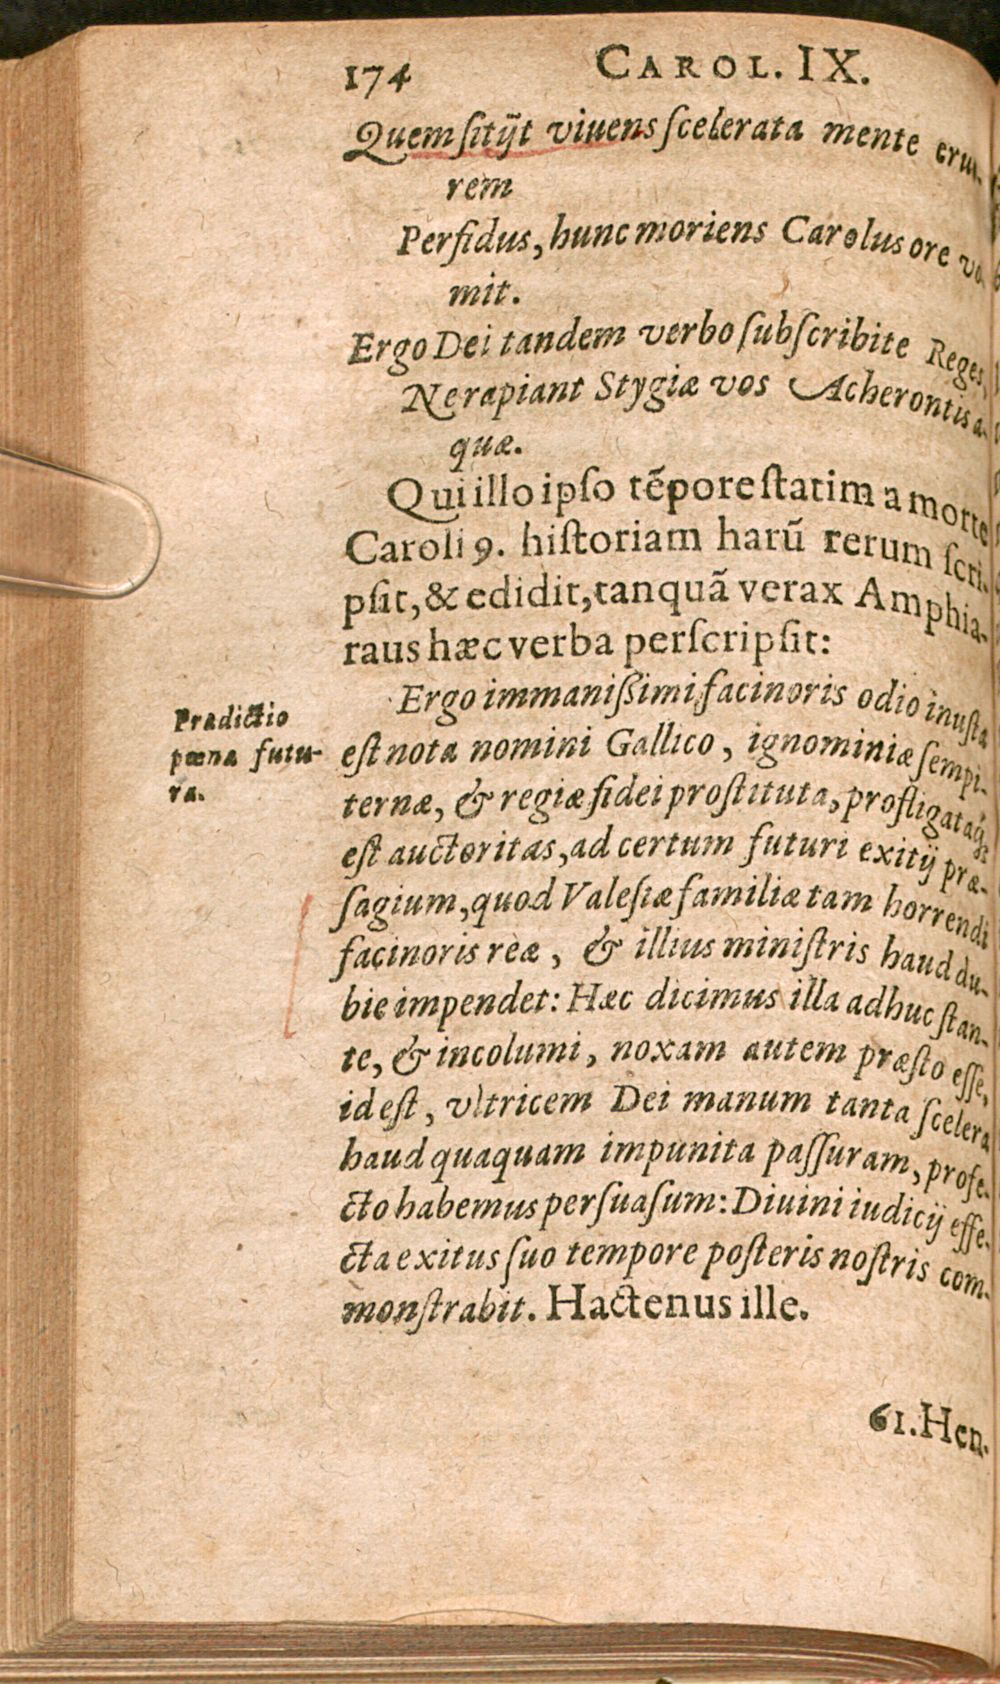 174 CAROL. IX.
Quem sitijt viuens scelerata mente cruo-
rem
Perfidus, hunc moriens Carolus ore vo-
mit.
Ergo Dei tandem verbo subscribite Reges,
Ne rapiant Stygiæ vos Acherontis a-
quæ.
Qui illo ipso tẽpore statim a morte
Caroli 9. historiam harũ rerum scri-
psit, & edidit, tanquã verax Amphia-
raus hæc verba perscripsit:
Ergo immanissimi facinoris odio inusta
est nota nomini Gallico, ignominiæ sempi-
Prædictio
pœna futu-
ra.
ternæ, & regiæ fidei prostituta, profligataq́;
est auctoritas, ad certum futuri exitij præ-
sagium, quod Valesiæ familiæ tam horrendi
facinoris reæ, & illius ministris haud du-
bie impendet: Hæc dicimus illa adhuc stan-
te, & incolumi, noxam autem præsto esse,
id est, vltricem Dei manum tanta scelera
haud quaquam impunita passuram, profe-
cto habemus persuasum: Diuini iudicij effe-
cta exitus suo tempore posteris nostris com-
monstrabit. Hactenus ille.
61. Hen-